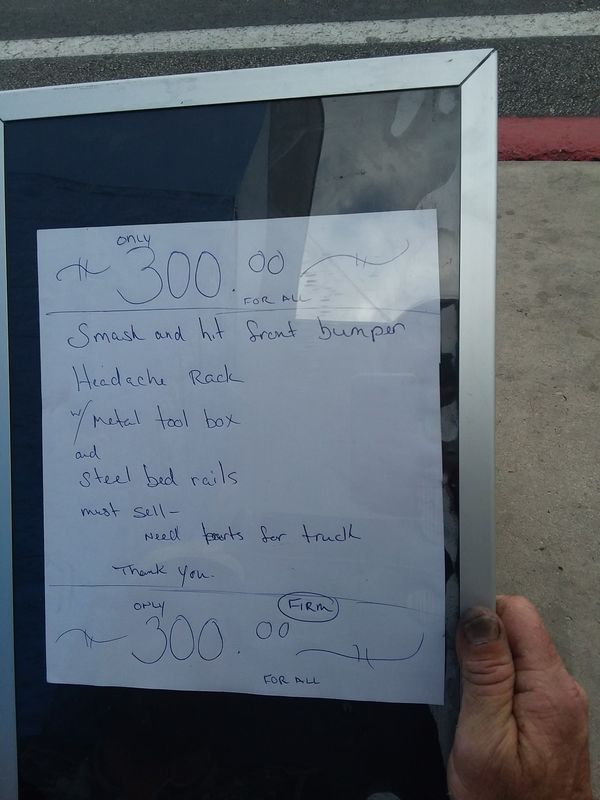 ONLY
300.00
FOR ALL
Smash and hit front bumper
Headache Rack
w/ Metal tool box
and
Steel bed rails
must sell-
Need parts for truck
Thank you.
ONLY
FIRM
300.00
FOR ALL